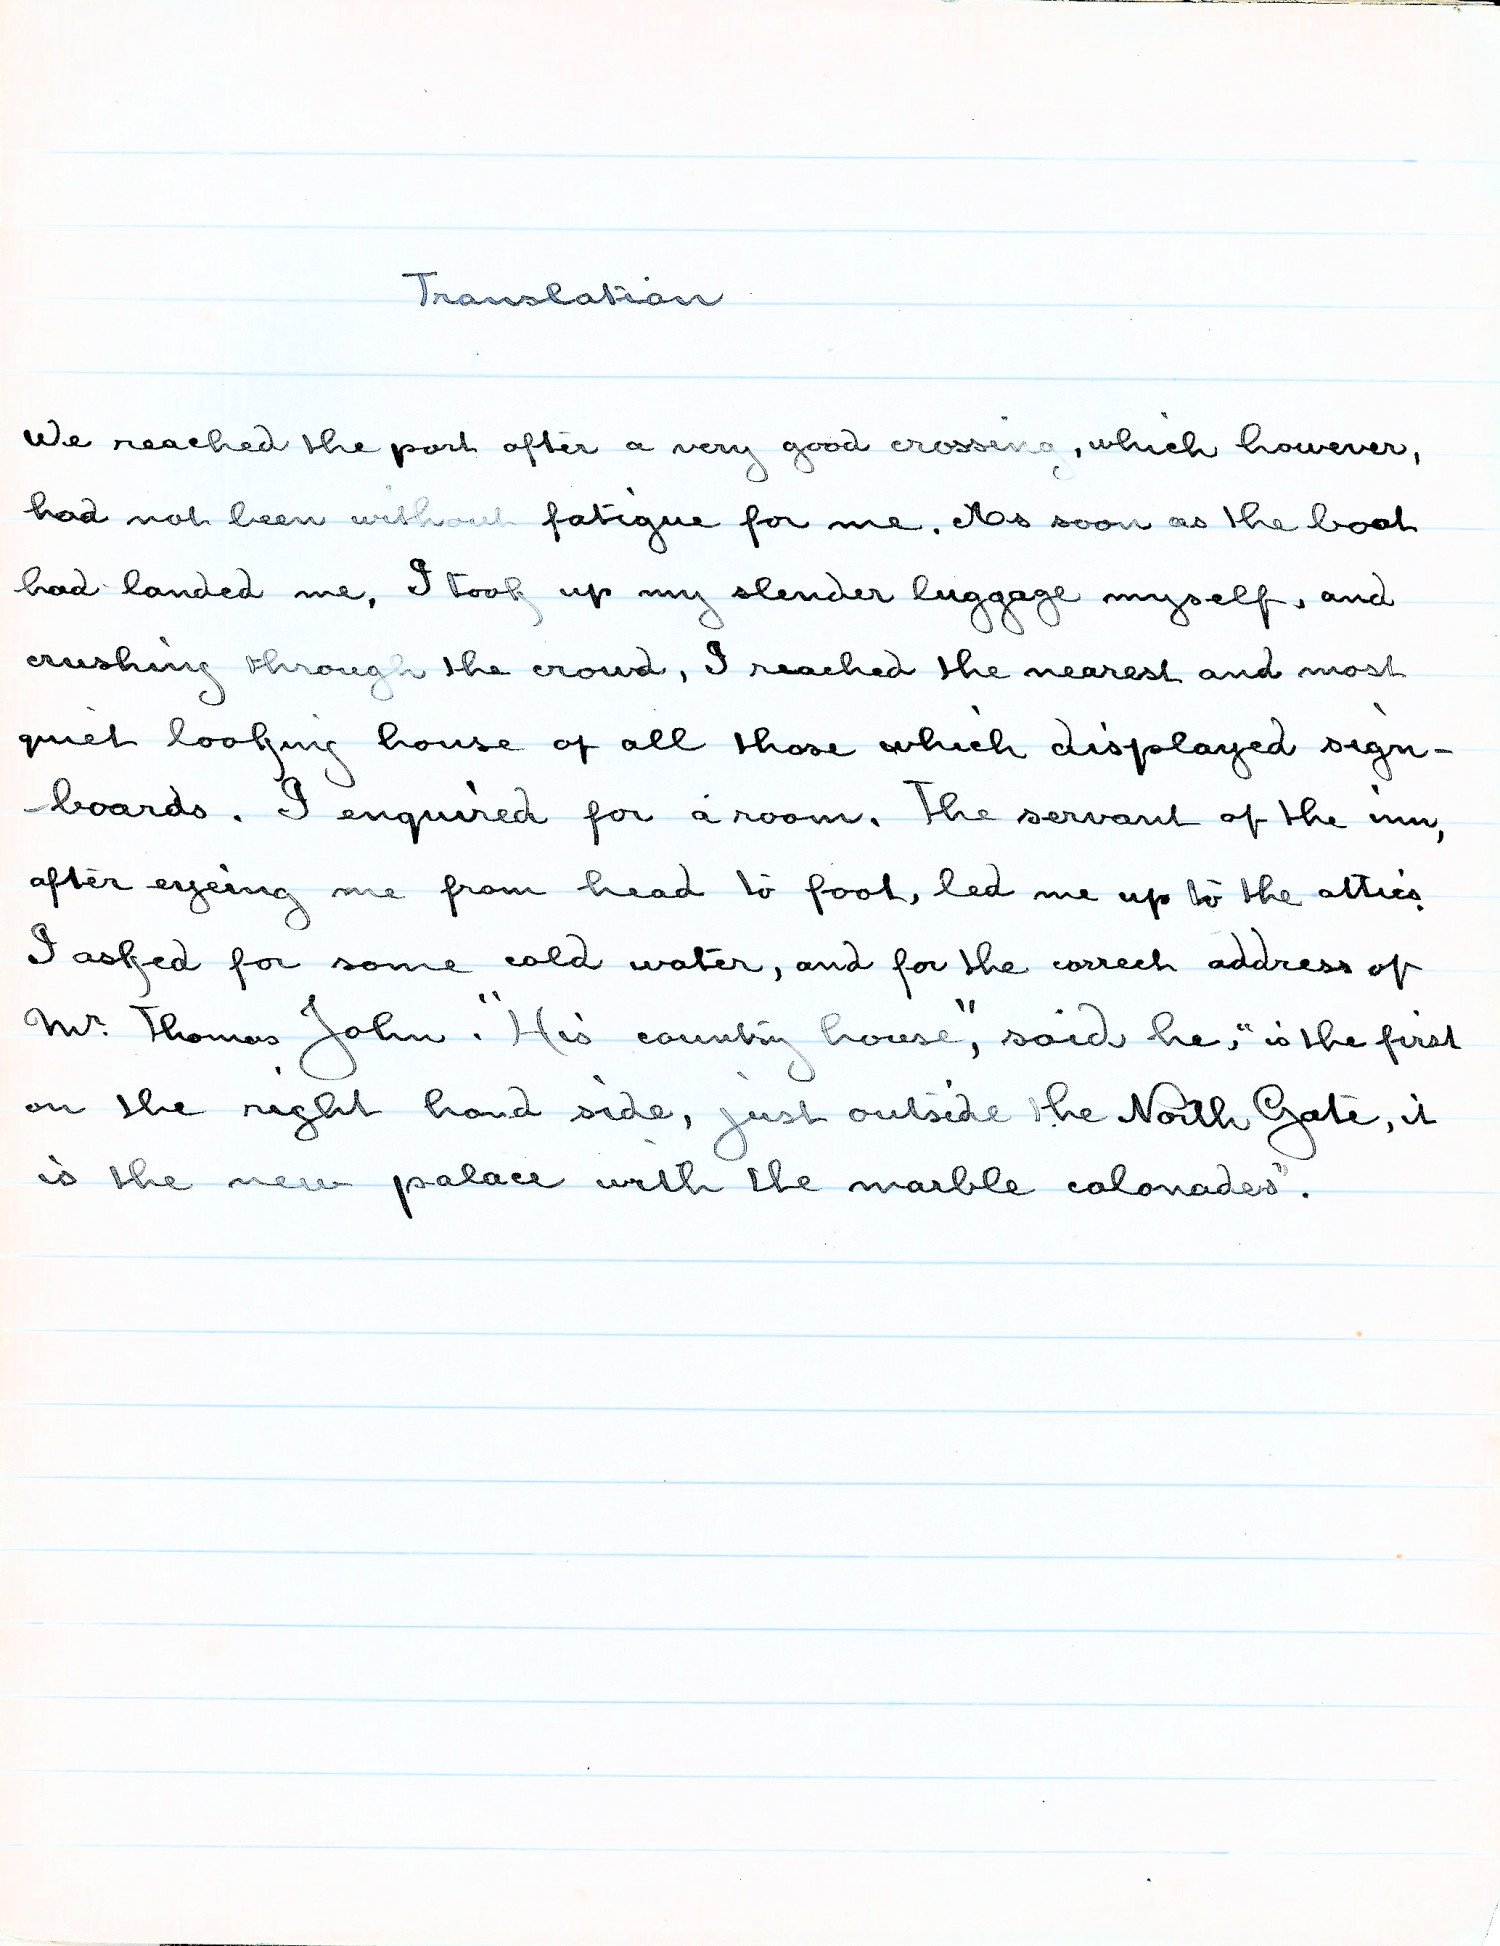 Translation
We reached the port after a very good crossing, which however,
had not been without fatigue for me. As soon as the boat
had landed me, I took up my slender luggage myself, and
crushing through the crowd, I reached the nearest and most
quiet looking house of all those which displayed sign-
-boards. I enquired for a room. The servant of the inn,
after eyeing me from head to foot, led me up to the attics.
I asked for some cold water, and for the correct address of
Mr. Thomas John. "His country house", said he, "is the first
on the right hand side, just outside the North Gate, it
is the new palace with the marble colonades".